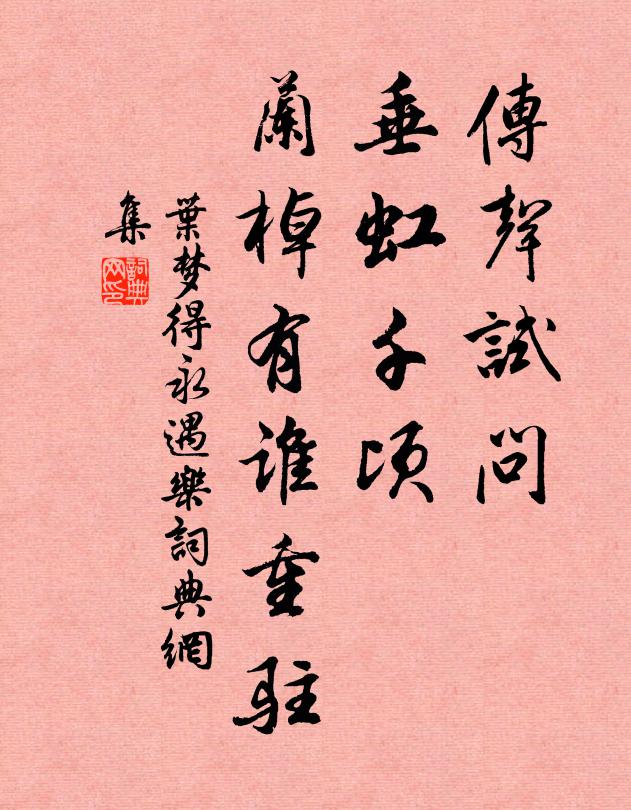 傳聲試問
垂虹千頃
蘭棹有誰重駐
葉梦得永遇樂詞典網
集
詞典
网印